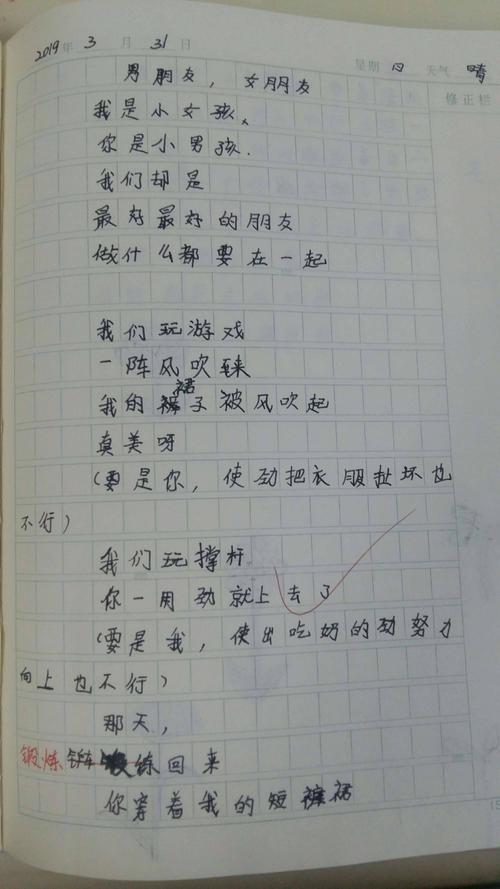 2019年 3 月 31 日 星期 日 天气 晴
修正栏
男朋友，女朋友
我是小女孩、
你是小男孩.
我们却是
最好最好的朋友
做什么都要在一起
我们玩游戏
一阵风吹来
裙
我的裤子被风吹起
真美呀
(要是你，使劲把衣服扯坏也
不行)
我们玩撑杆
你一用劲就上去了
(要是我，使出吃奶的劲努力
向上也不行)
那天，
锻炼 练回来
你穿着我的短裤裙